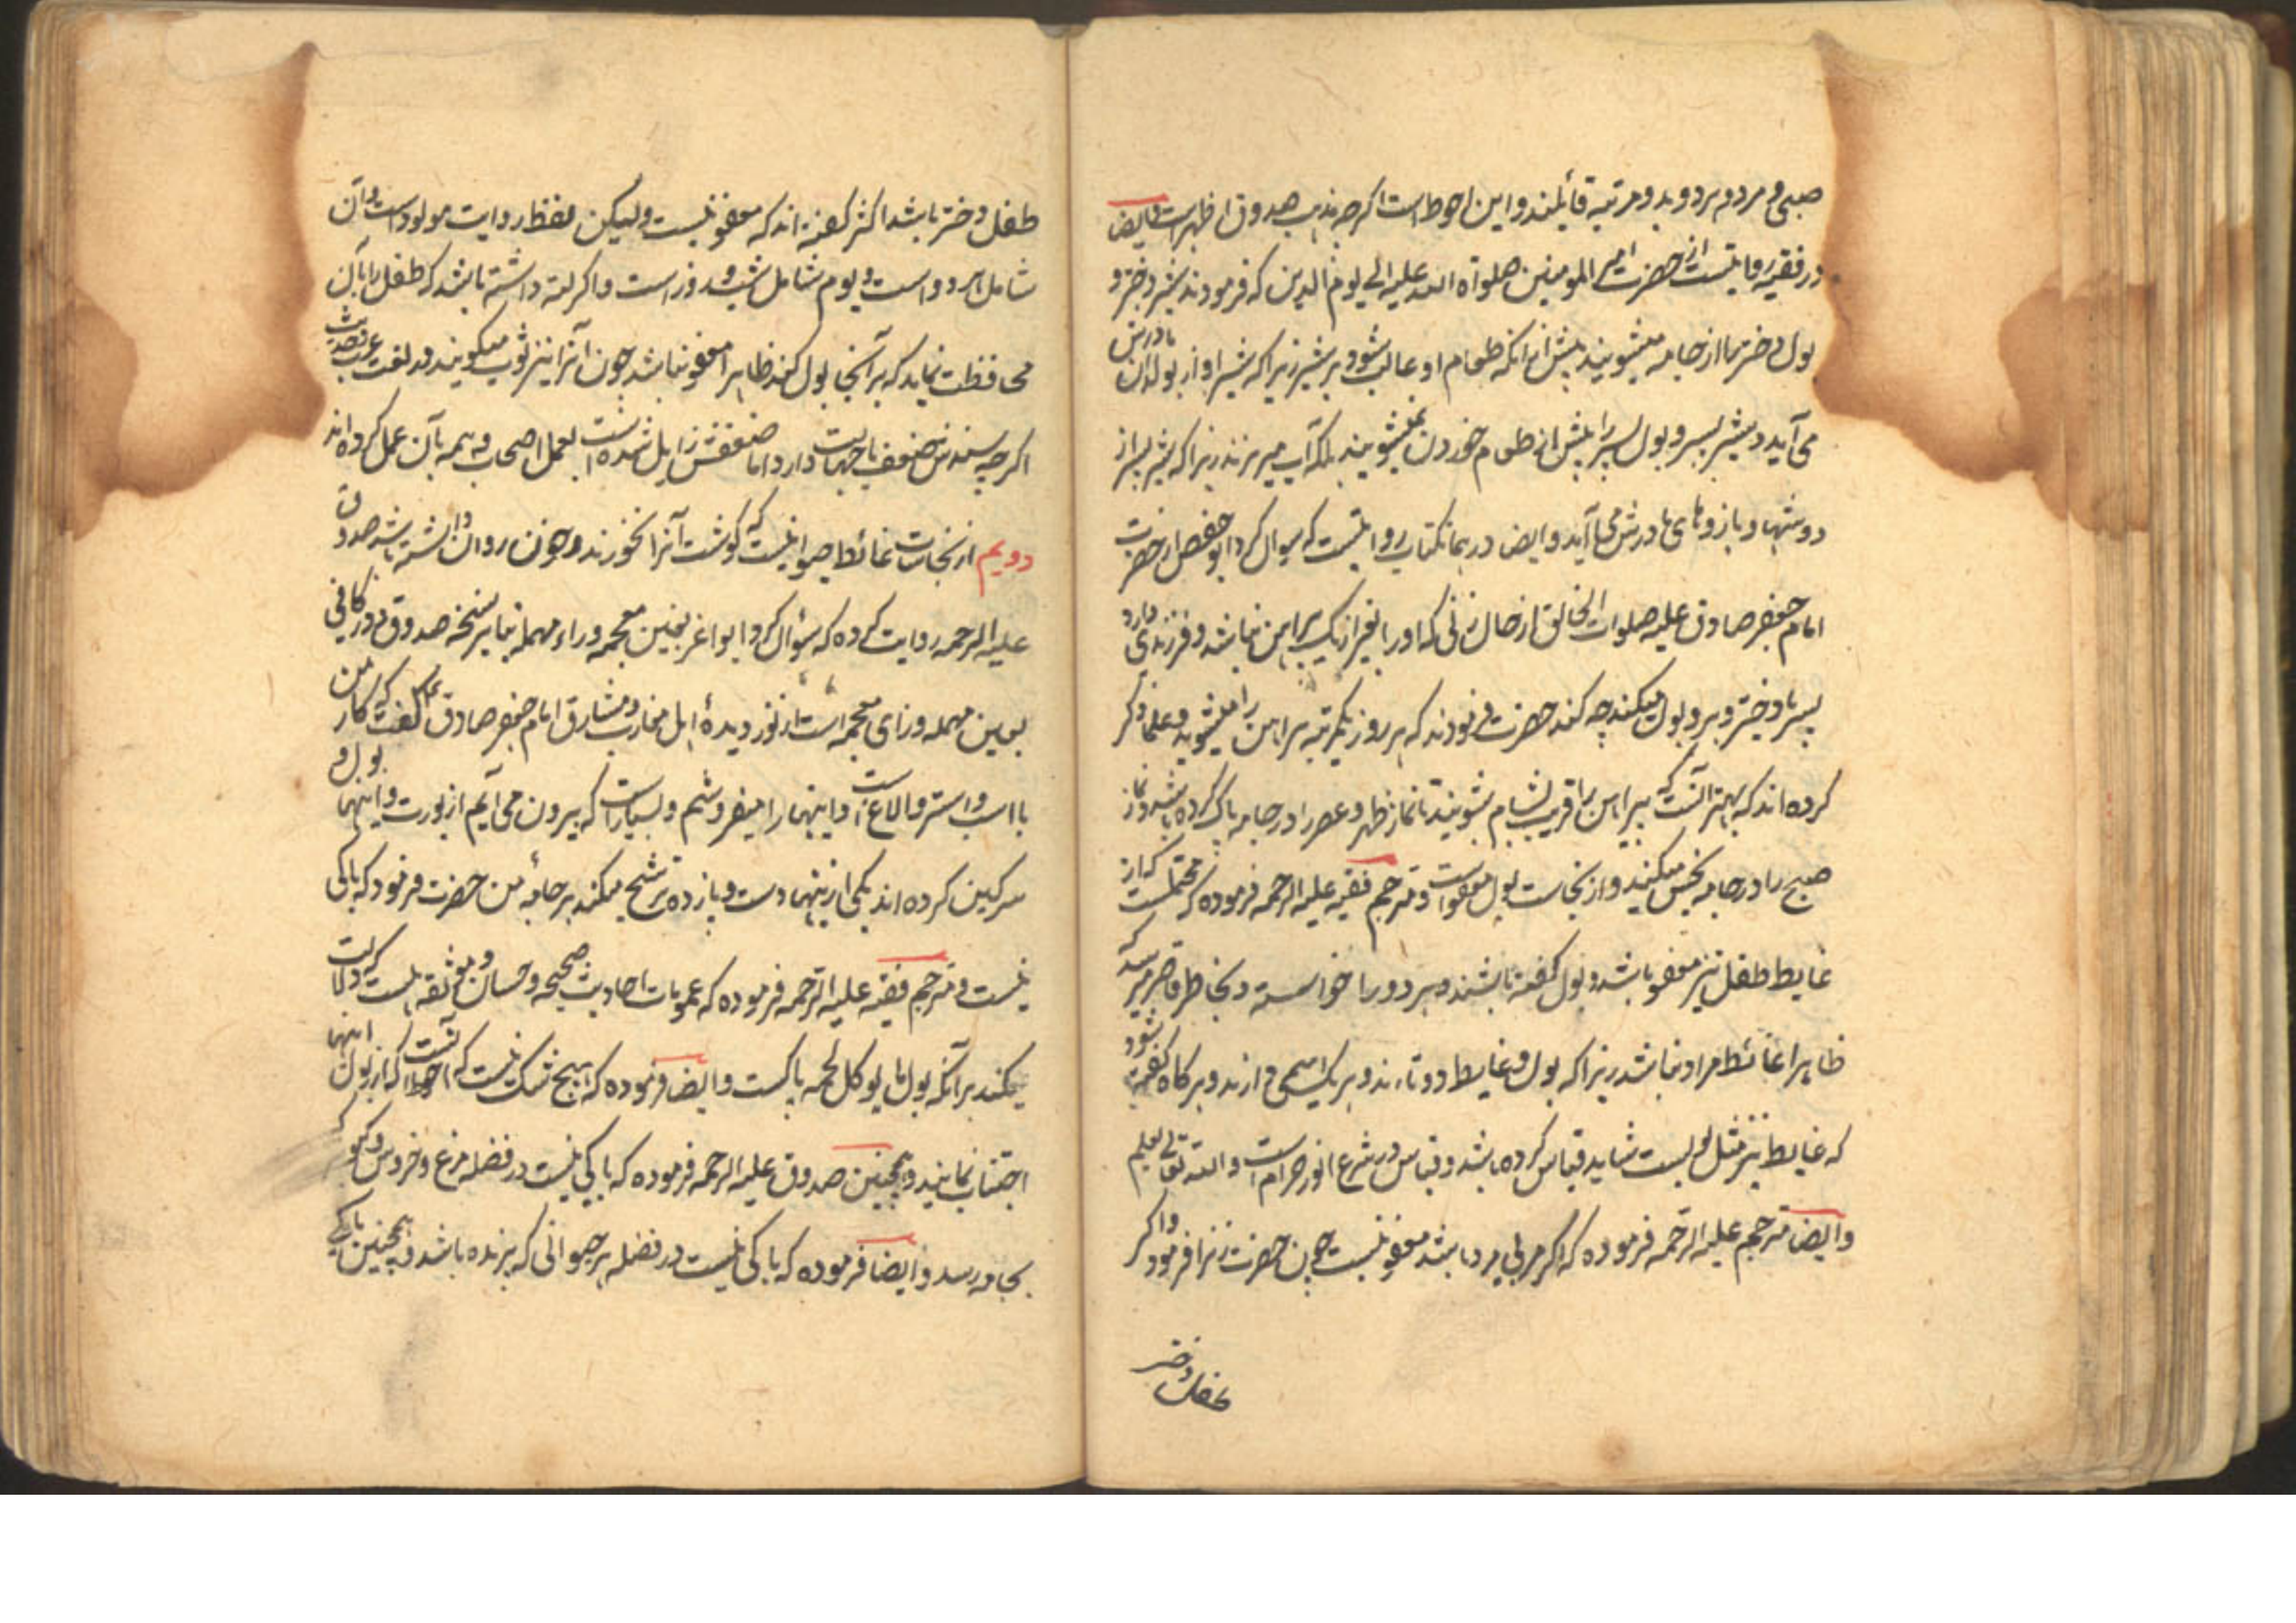 صبی و مرد و مرد و بد و مرتبه قائلند و این احوط است اکرچه مذهب صدوق اظهر است و ایضا
در فقیه روایتست از حضرت امیر المومنین صلواة الله علیه الی یوم الدین که فرمودند شیر دختر و
بول دختر را از جامه میشویند پیش از انکه طعام او غالب شود بر شیر زیرا که شیر او از بولدان مادرش
می آید و شیر پسر و بول پسر را پیش از طعام خوردن نمیشویند بلکه آب میریزند زیرا که شیر پسر از
دوشها و بازوهای مادرش می آید و ایضا در همانکتاب روایتست که سوال کرد ابو حفص از حضرت
امام جعفر صادق علیه صلوات الخالق از حال زنی که او را بغیر از یک پیراهن نباشد و فرزندی دارد
پسر یا دختر و برو بول میکند چه کند حضرت فرمودند که هر روز یکمرتبه پیراهن را میشوید و علما ذکر
کرده اند که بهتر آنست که پیراهن را قریب بشام بشویند تا نماز ظهر و عصر را در جامه پاک کرده باشد و نماز
صبح را در جامه نجس میکنند و از نجاست بول معفو است و مترجم فقیه علیه الرحمه فرموده که محتملست که از
غایط طفل نیز معفو باشد و بول گفته باشند و هر دو را خواسته و بخاطر قاصر میرسد که
ظاهرا غائط مراد نباشد زیرا که بول و غایط دو تاءند و هر یک اسمی دارند و هر کاه گفته شود
که غایط نیز مثل بولست شاید قیاس کرده باشد و قیاس در شرع انور حرام است و الله تعالی یعلم
و ایضا مترجم علیه الرحمه فرموده که اکر مربی مرد باشد معفو نیست چون حضرت زنرا فرمود و اکر
طفل دختر
طفل دختر باشد اکثر گفته اند که معفو نیست ولیکن لفظ روایت مولود است و آن
شامل هر دو است و یوم شامل شب و روز است و اکر لته داشته باشد که طفل را بآن
محافظت نماید که بر آنجا بول کند ظاهرا معفو نباشد چون آنرا نیز ثوب میکویند در لغت عرب و حدیث
اکرچه سندش ضعف یا جهالت دارد اما ضعفش زایل شده است بعمل اصحاب و همه بآن عمل کرده اند
دویم از نجاسات غائط حیوانیست که کوشت آنرا نخورند و خون روان داشته باشد صدوق
علیه الرحمه روایت کرده که سؤال کرد ابو اغر بغین معجمه و راء مهمله بنا بر نسخه صدوق و در کافی
بعین مهمله و زای معجمه است از نور دیدهٔ اهل مغارب و مشارق امام جعفر صادق ع گفت که کار من
با اسب و استر و الاغ است و اینها را میفروشم و بسیار است که بیرون می آیم از بورت و اینها بول و
سرکین کرده اند یکی از اینها دست و پا زده ترشح میکند بر جامهٔ من حضرت فرمود که باکی
نیست و مترجم فقیه علیه الرحمه فرموده که عمومات احادیث صحیحه و حسان و موثقه هست که دلالت
میکند بر آنکه بول ما یوکل لحمه پاکست و ایضا فرموده که هیچ شک نیست که احوط آنست که از بول اینها
اجتناب نمایند و همچنین صدوق علیه الرحمه فرموده که باکی نیست در فضله مرغ و خروس و کبوتر که
بجامه رسد و ایضا فرموده که باکی نیست در فضله هر حیوانی که پرنده باشد و همچنین باکی